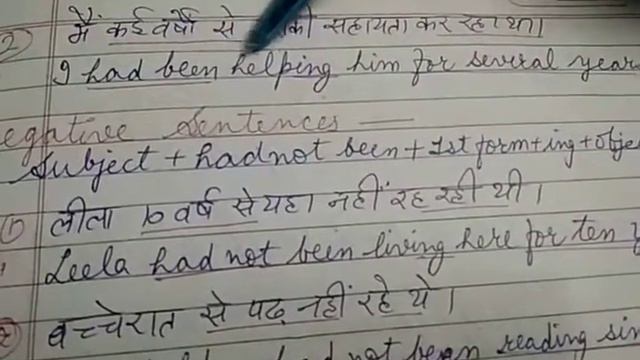 2 मैं कई वर्षों से की सहायता कर रहा था।
I had been helping him for several year
egative Sentences —
Subject + had not been + 1st form + ing + obje
① लीला 10 वर्ष से यहा नहीं रह रही थी।
Leela had not been living here for ten y
2 बच्चे रात से पढ़ नहीं रहे थे।
not been reading sin